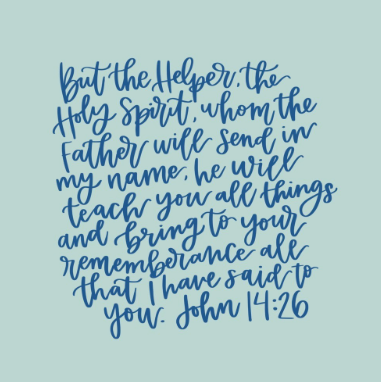 But the Helper, the
Holy Spirit, whom the
Father will send in
my name, he will
teach you all things
and bring to your
rememberance all
that I have said to
you. John 14:26